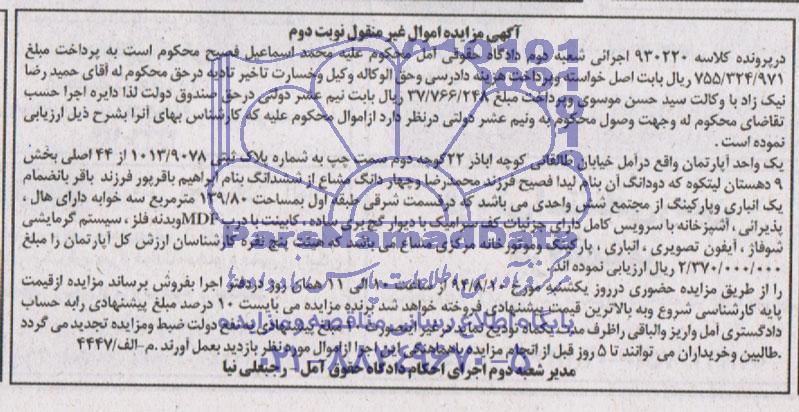 آگهی مزایده اموال غیر منقول نوبت دوم
درپرونده کلاسه ۹۳۰۲۲۰ اجرائی شعبه دوم دادگاه حقوقی آمل محکوم علیه محمد اسماعیل فصیح محکوم است به پرداخت مبلغ
۷۵۵/۳۲۴/۹۷۱ ریال بابت اصل خواسته وپرداخت هزینه دادرسی وحق الوکاله وکیل وخسارت تاخیر تادیه درحق محکوم له آقای حمید رضا
نیک زاد با وکالت سید حسن موسوی وپرداخت مبلغ ۳۷/۷۶۶/۲۴۸ ریال بابت نیم عشر دولتی درحق صندوق دولت لذا دایره اجرا حسب
تقاضای محکوم له وجهت وصول محکوم به ونیم عشر دولتی درنظر دارد ازاموال محکوم علیه که کارشناس بهای آنرا بشرح ذیل ارزیابی
نموده است .
یک واحد آپارتمان واقع درآمل خیابان طالقانی کوچه اباذر ۲۲ کوچه دوم سمت چپ به شماره پلاک ثبتی ۱۰۱۳/۹۰۷۸ از ۴۴ اصلی بخش
۹ دهستان لیتکوه که دودانگ آن بنام لیدا فصیح فرزند محمدرضا وچهار دانگ مشاع از ششدانگ بنام ابراهیم باقرپور فرزند باقر بانضمام
یک انباری وپارکینگ از مجتمع شش واحدی می باشد که درقسمت شرقی طبقه اول بمساحت ۱۳۹/۸۰ مترمربع سه خوابه دارای هال ،
پذیرائی ، آشپزخانه با سرویس کامل دارای جزئیات کف سرامیک با دیوار گچ بری ساده ، کابینت با درب MDF وبدنه فلز ، سیستم گرمایشی
شوفاژ ، آیفون تصویری ، انباری ، پارکینگ وموتورخانه مرکزی مشاع می باشد که هیئت پنج نفره کارشناسان ارزش کل آپارتمان را مبلغ
۲/۳۷۰/۰۰۰/۰۰۰ ریال ارزیابی نموده اند.
را از طریق مزایده حضوری درروز یکشنبه مورخ ۹۴/۸/۱۰ از ساعت ۱۰ الی ۱۱ همان روز دردفتر اجرا بفروش برساند مزایده ازقیمت
پایه کارشناسی شروع وبه بالاترین قیمت پیشنهادی فروخته خواهد شد برنده مزایده می بایست ۱۰ درصد مبلغ پیشنهادی رابه حساب
دادگستری آمل واریز والباقی راظرف مدت یکماه تودیع نماید درغیر اینصورت مبلغ سپرده بنفع دولت ضبط ومزایده تجدید می گردد
.طالبین وخریداران می توانند تا ۵ روز قبل از انجام مزایده باهماهنگی این اجرا ازاموال مورد نظر بازدید بعمل آورند .م-الف/۴۴۴۷
مدیر شعبه دوم اجرای احکام دادگاه حقوق آمل - رجبعلی نیا
ParsNamadData
پایگاه اطلاع رسانی مناقصه و مزایده
۰۲۱-۸۸۳۴۹۶۷۰-۵